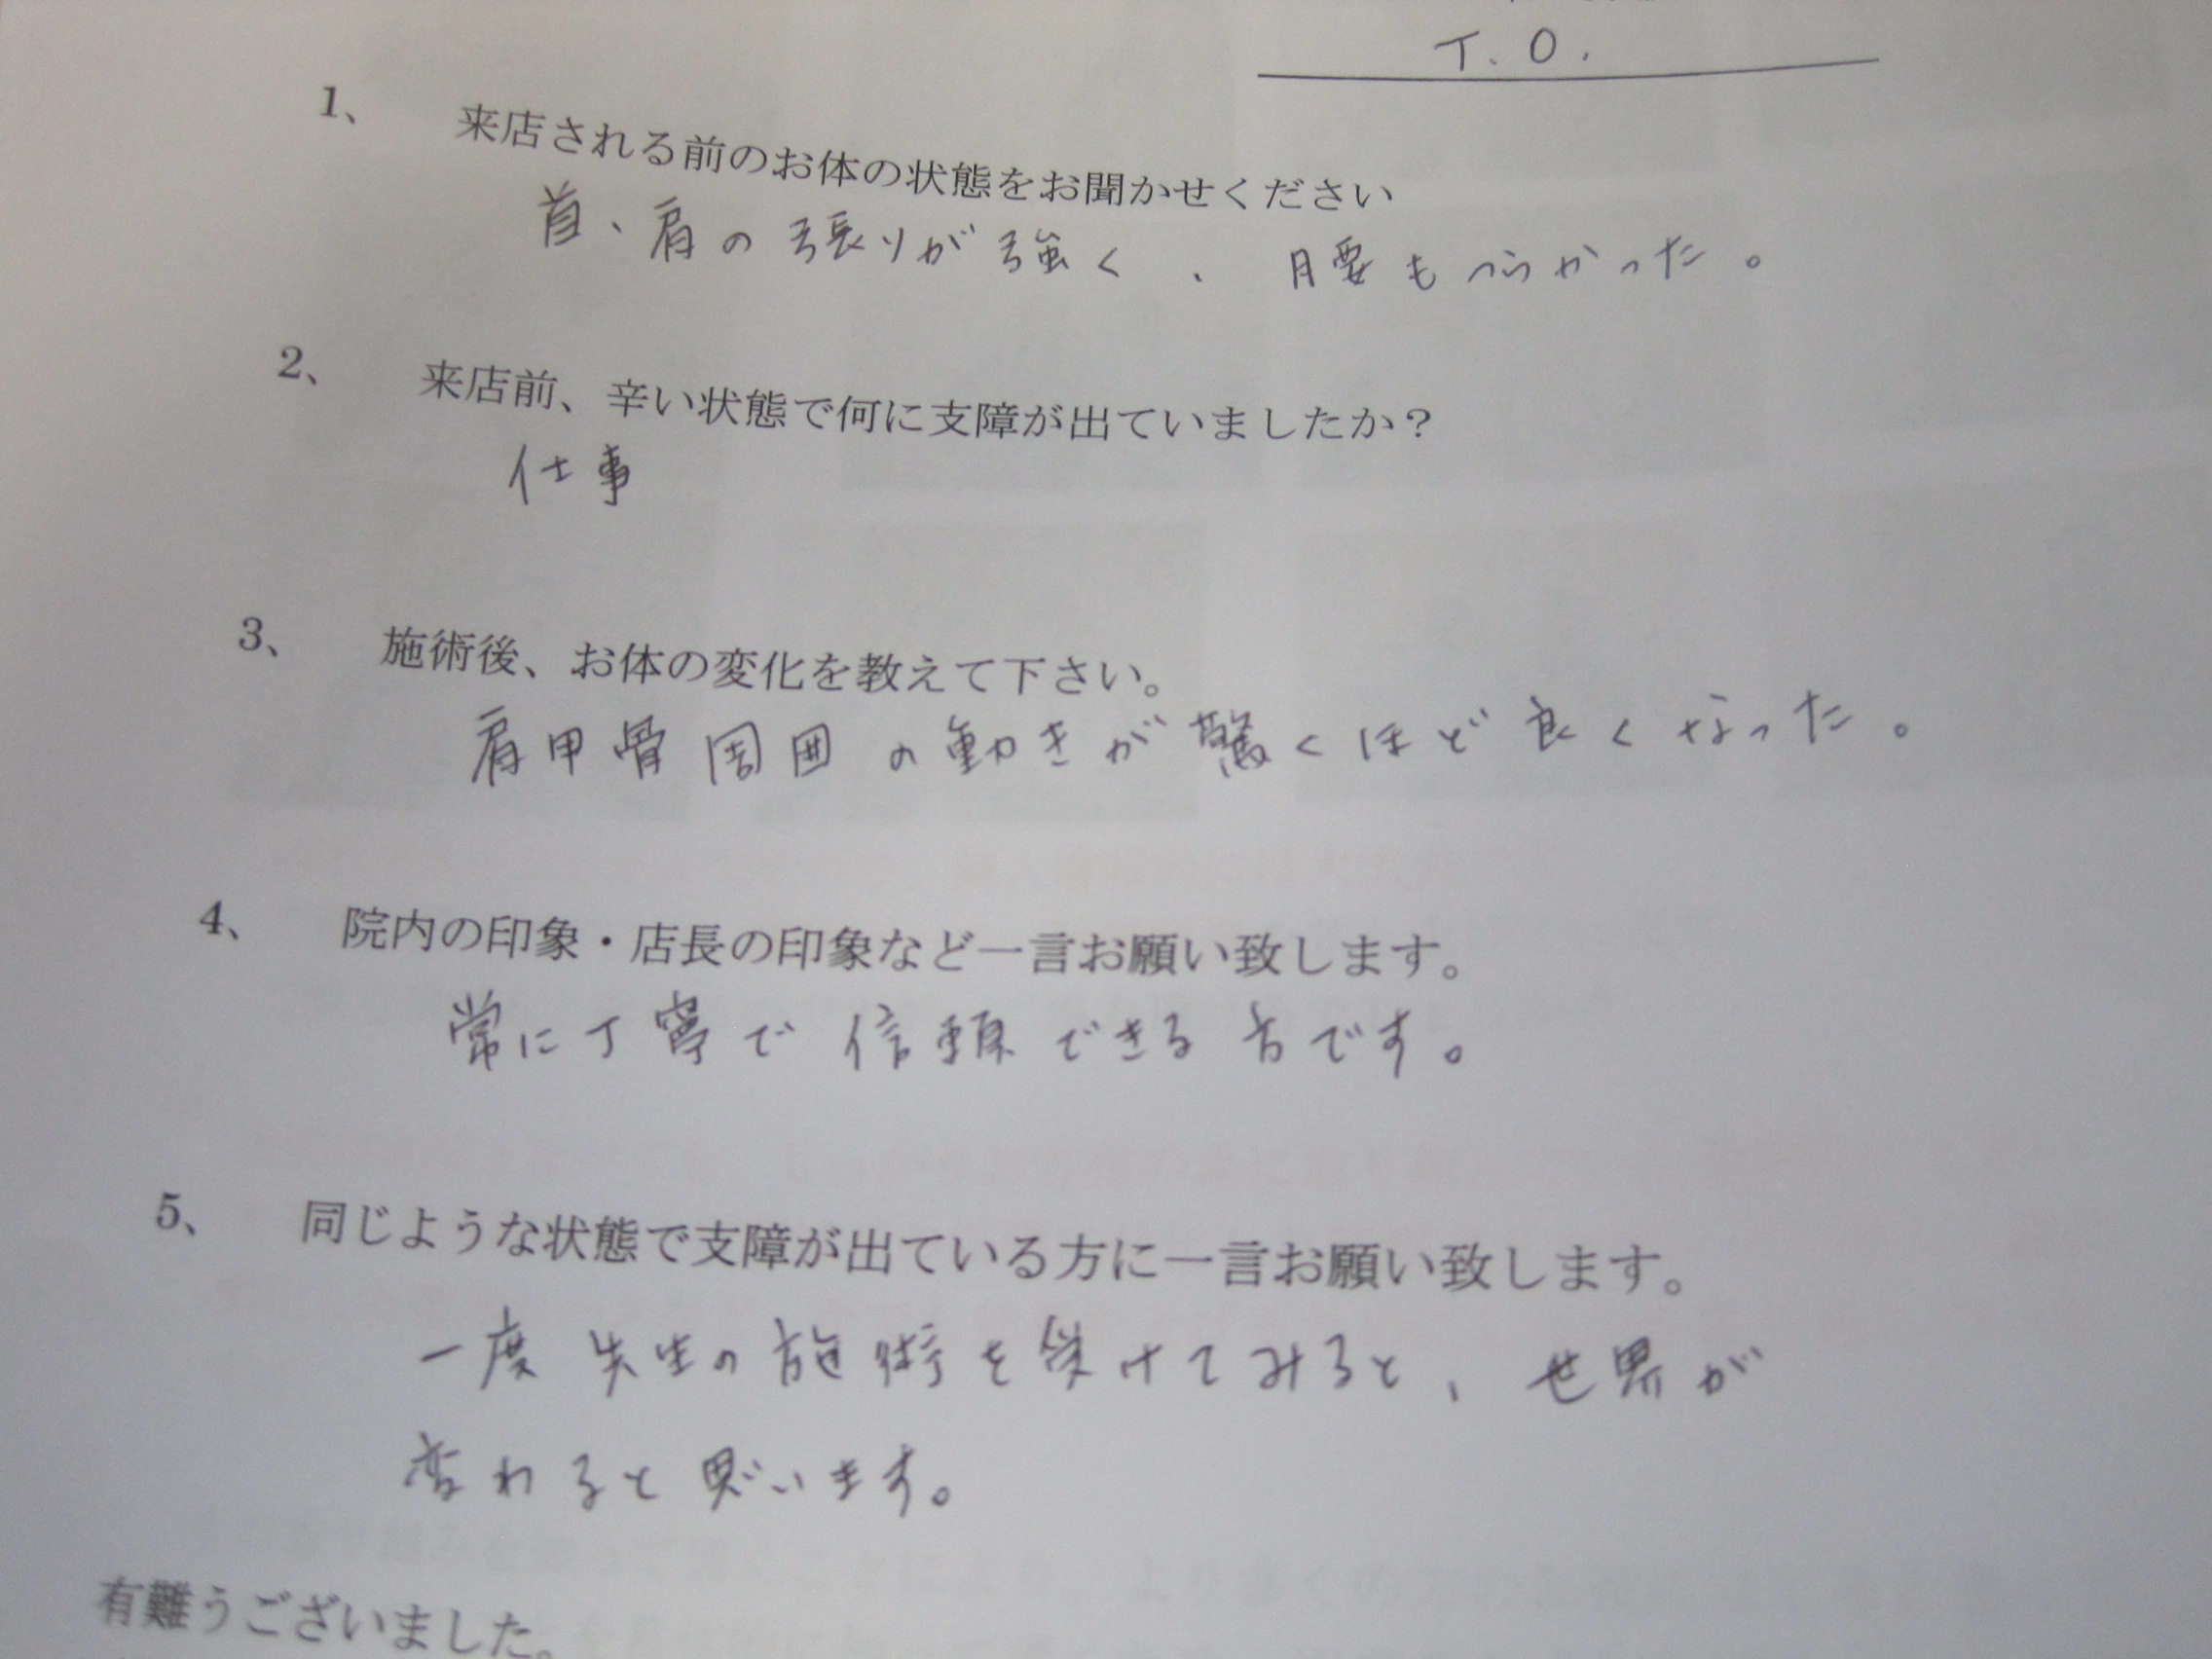 T. O.
1、 来店される前のお体の状態をお聞かせください
首、肩の張りが強く、腰もつらかった。
2、 来店前、辛い状態で何に支障が出ていましたか？
仕事
3、 施術後、お体の変化を教えて下さい。
肩甲骨周囲の動きが驚くほど良くなった。
4、 院内の印象・店長の印象など一言お願い致します。
常に丁寧で信頼できる方です。
5、 同じような状態で支障が出ている方に一言お願い致します。
一度先生の施術を受けてみると、世界が
変わると思います。
有難うございました。